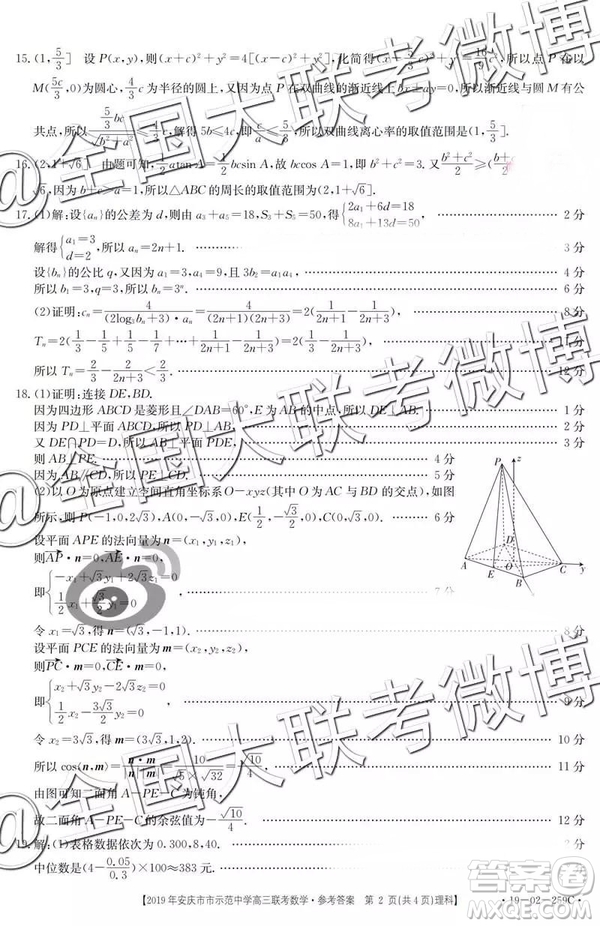 15.(1,5/3] 设P(x,y),则(x+c)²+y²=4[(x-c)²+y²],化简得(x-5c/3)²+y²=16/9c²,所以点P在以
M(5c/3,0)为圆心,4/3c为半径的圆上,又因为点P在双曲线的渐近线上,所以渐近线bx±ay=0与圆M有公
共点,所以(5/3bc)/√(b²+a²)≤4/3c,解得5b≤4c,即 所以双曲线离心率的取值范围是(1,5/3].
16.(2,1+√6] 由题可知, bcsin A,故bccos A=1,即b²+c²=3.又(b²+c²)/2≥
√6,因为b+c>a=1,所以△ABC的周长的取值范围为(2,1+√6].
17.(1)解:设{aₙ}的公差为d,则由a₃+a₅=18,S₃+S₅=50,得{2a₁+6d=18 8a₁+13d=50 ……2分
解得{a₁=3 d=2,所以aₙ=2n+1. ……3分
设{bₙ}的公比为q,又因为a₁=3,a₄=9,且3b₂=a₁a₄, ……4分
所以b₁=3,q=3,所以bₙ=3ⁿ. ……6分
(2)证明:cₙ=4/((2log₃bₙ+3)·aₙ)=4/((2n+1)(2n+3))=2(1/(2n+1)-1/(2n+3))
Tₙ=2(1/3-1/5+1/5-1/7+…+1/(2n+1)-1/(2n+3))=2(1/3-1/(2n+3))
Tₙ=2/3-2/(2n+3)<2/3. ……12分
18.(1)证明:连接DE,BD.
因为四边形ABCD是菱形且∠DAB=60°,E为AB的中点,所以DE⊥AB. ……1分
因为PD⊥平面ABCD,所以PD⊥AB, ……2分
又DE∩PD=D,所以AB⊥平面PDE, ……3分
则AB⊥PE. ……4分
因为AB∥CD,所以PE⊥CD. ……5分
(2)以O为原点建立空间直角坐标系O-xyz(其中O为AC与BD的交点),如图
所示,则P(-1,0,2√3),A(0,-√3,0),E(1/2,-√3/2,0),C(0,√3,0). ……6分
P
z
D
O
A
E
B
C
y
x
设平面APE的法向量为n=(x₁,y₁,z₁),
则AP·n=0,AE·n=0,
即{-x₁+√3y₁+2√3z₁=0 1/2x₁+√3/2y₁=0 ……7分
令x₁=√3,得n=(√3,-1,1). ……8分
设平面PCE的法向量为m=(x₂,y₂,z₂),
则PC·m=0,CE·m=0,
即{x₂+√3y₂-2√3z₂=0 1/2x₂-3√3/2y₂=0
令 =√3,得m=(3√3,1,2). ……10分
所以cos⟨n,m⟩=n·m/|n||m|=10/(√5×√32)=√10/4. ……11分
由图可知二面角A-PE-C为钝角,
故二面角A-PE-C的余弦值为-√10/4. ……12分
19.解:(1)表格数据依次为0.300,8,40.
中位数是(4-0.05/0.3)×100≈383元.
【2019年安庆市市示范中学高三联考数学·参考答案 第2页(共4页)理科】
·19-02-259C·
@全国大联考微博
@全国大联考微博